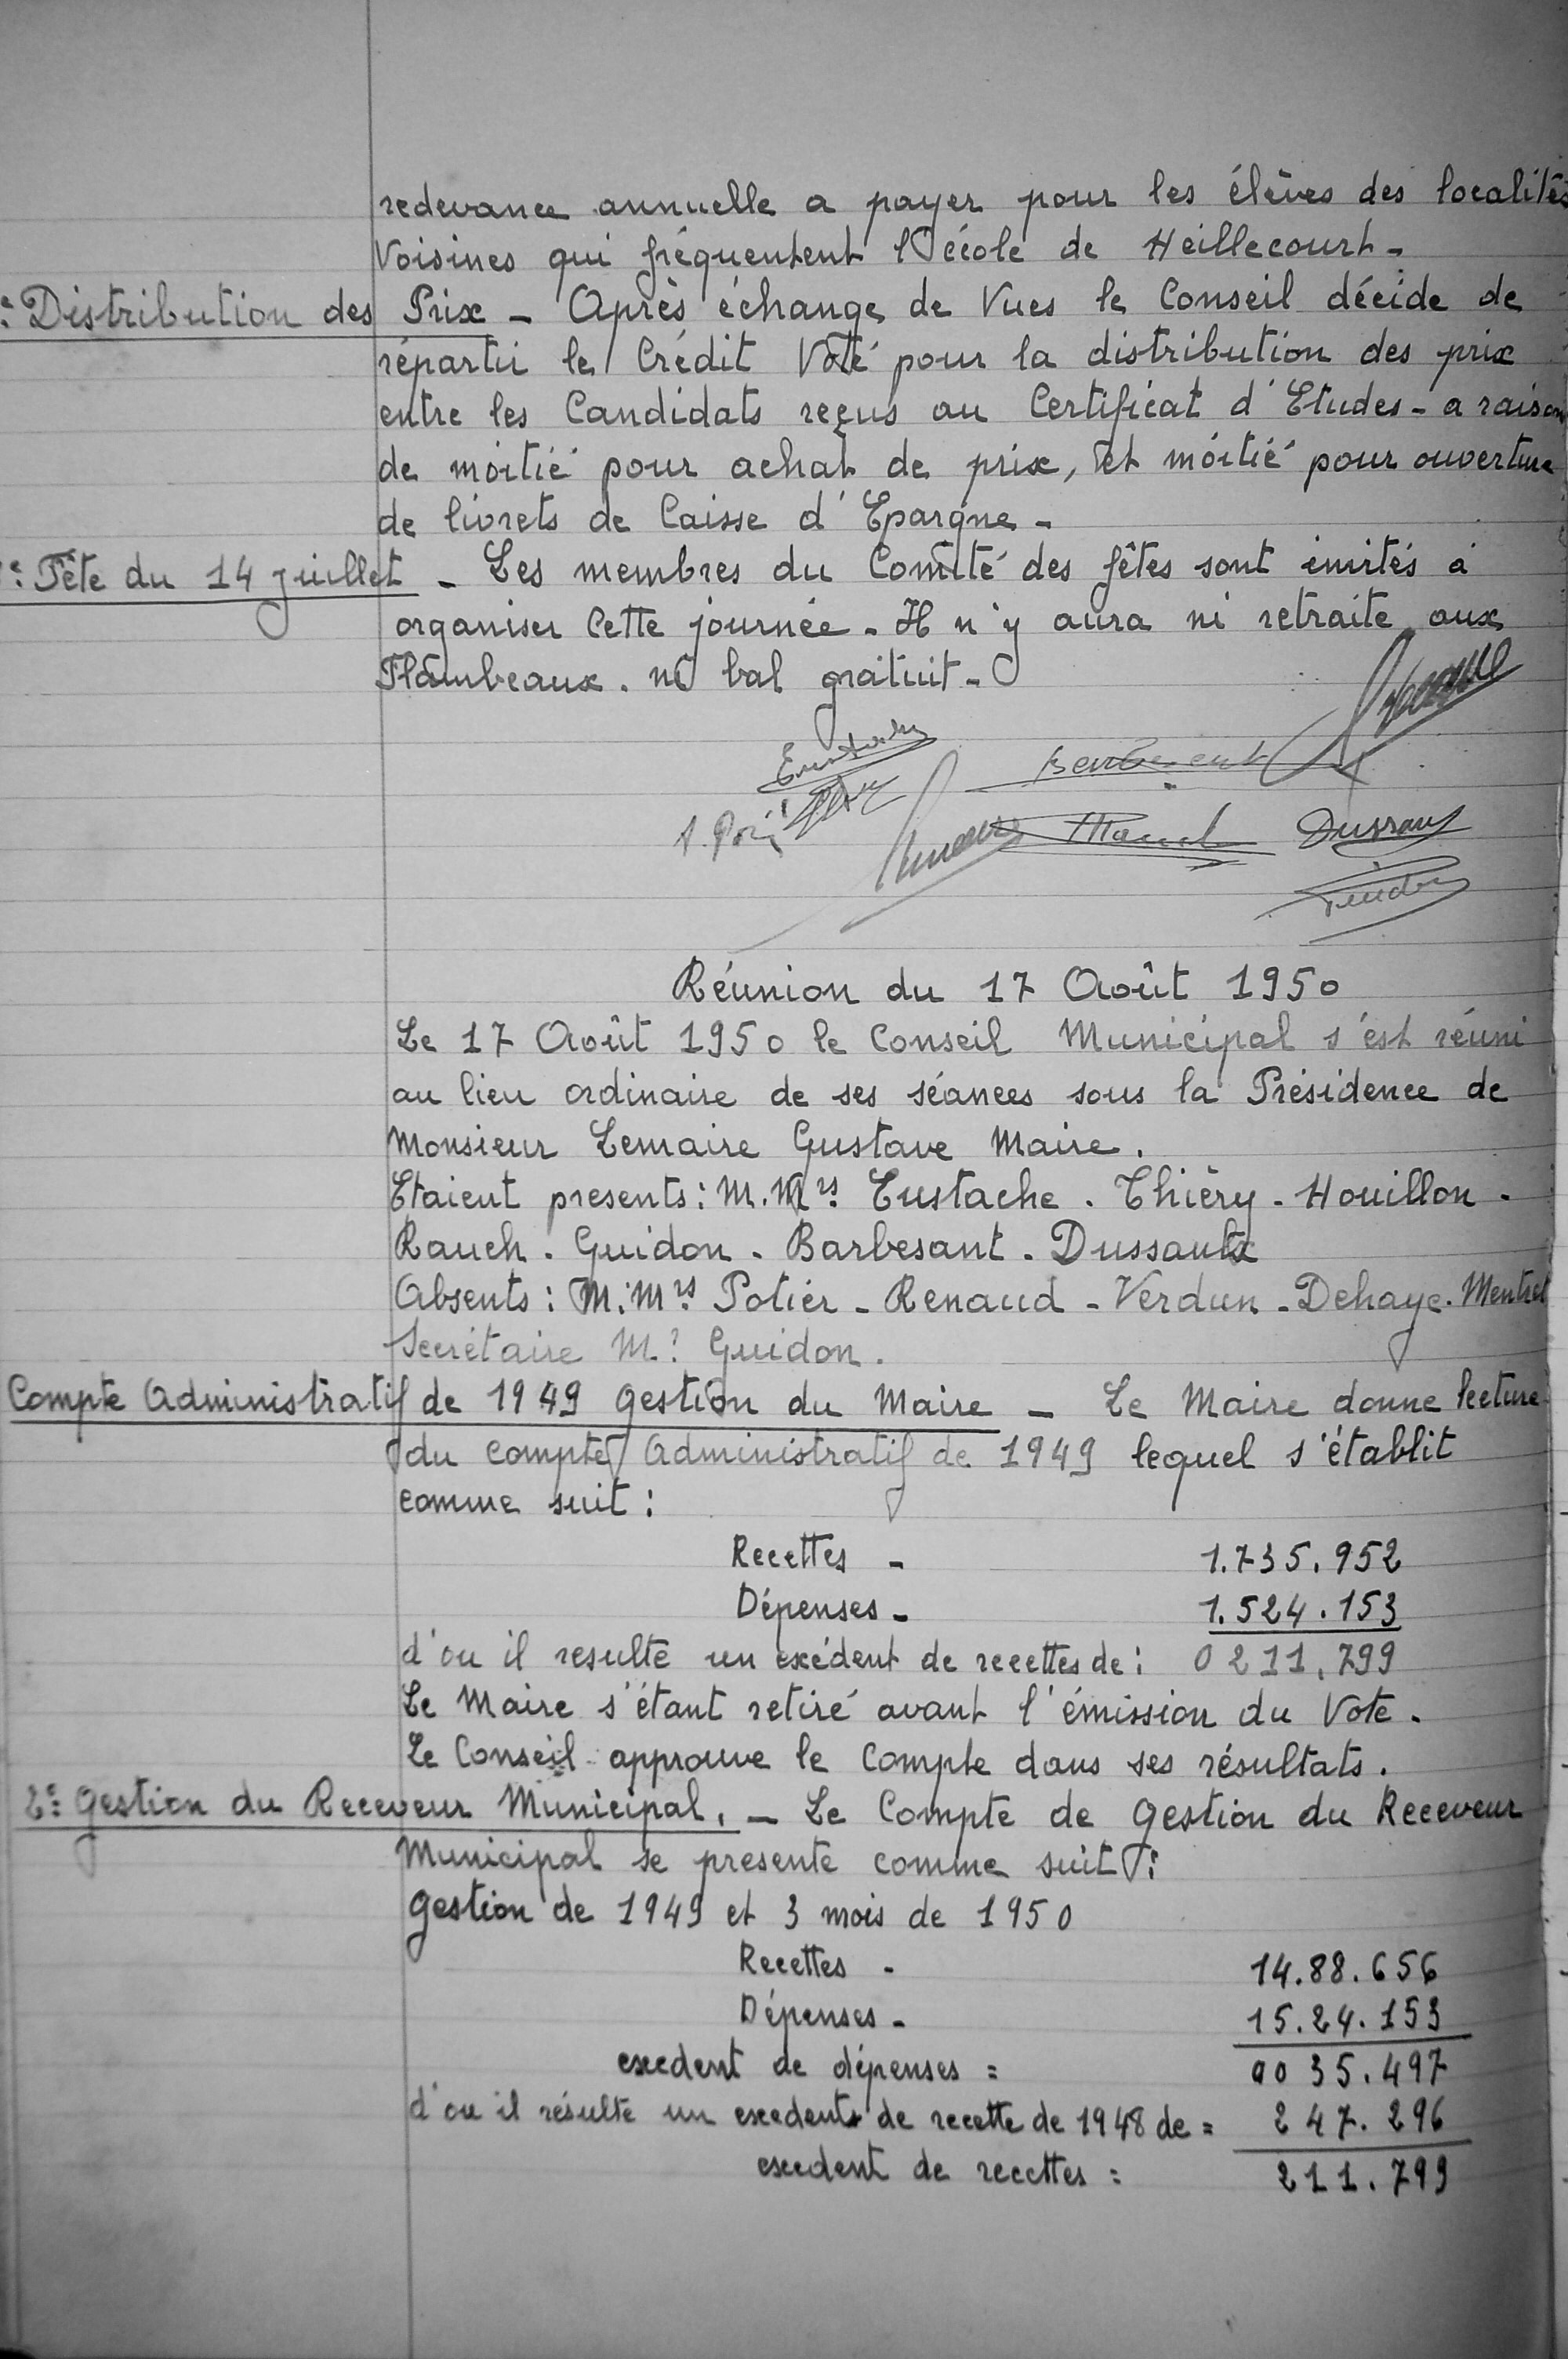 redevance annuelle a payer pour les élèves des localités
Voisines qui fréquentent l'école de Heillecourt -
: Distribution des Prix - Après échange de Vues le Conseil décide de
répartir le Crédit Voté pour la distribution des prix
entre les Candidats reçus au Certificat d'Etudes - a raison
de moitié pour achat de prix, et moitié pour ouverture
de livrets de Caisse d'Epargne -
: Fête du 14 juillet - Les membres du Comité des fêtes sont invités à
organiser Cette journée - Il n'y aura ni retraite aux
Flambeaux. ni bal gratuit -
Dussaux
Réunion du 17 Août 1950
Le 17 Août 1950 le Conseil Municipal s'est réuni
au lieu ordinaire de ses séances sous la Présidence de
Monsieur Lemaire Gustave Maire.
Etaient presents : M.Mrs Eustache. Thièry - Houillon.
Rauch. Guidon. Barbesant. Dussaulx
Absents : M.Mrs Potier - Renaud - Verdun - Dehaye. Mentrel
Secrétaire Mr Guidon.
Compte Administratif de 1949 gestion du Maire - Le Maire donne lecture
du compte Administratif de 1949 lequel s'établit
comme suit :
Recettes - 1.735.952
Dépenses - 1.524.153
d'ou il resulte un exédent de recettes de : 0 211.799
Le Maire s'étant retiré avant l'émission du Vote.
Le Conseil approuve le Compte dans ses résultats.
2e: gestion du Receveur Municipal. - Le Compte de gestion du Receveur
Municipal se presente comme suit :
gestion de 1949 et 3 mois de 1950
Recettes - 14.88.656
Dépenses - 15.24.153
excedent de dépenses = 00 35.497
d'ou il résulte un excedent de recette de 1948 de = 247.296
excedent de recettes = 211.799